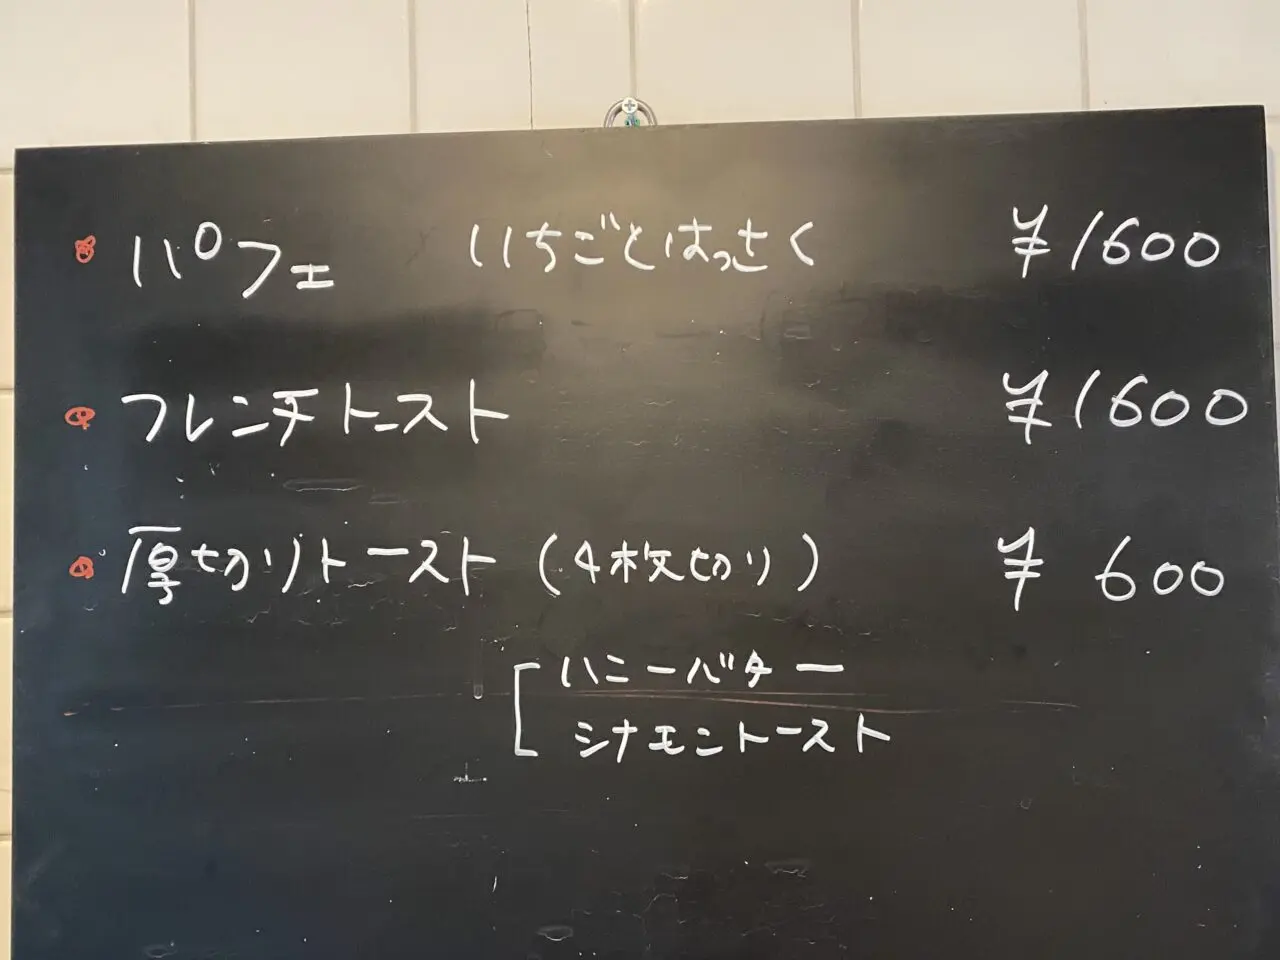 パフェ いちごとはっさく ¥1600
フレンチトースト ¥1600
厚切りトースト(4枚切り) ¥ 600
ハニーバター
シナモントースト